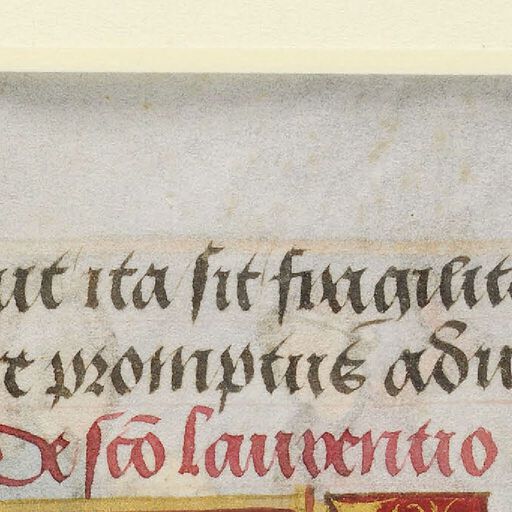 ut ita sit fragilit
promptus adu
De sco laurentio